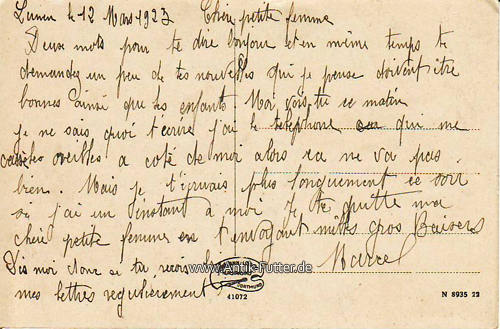 Lunen le 12 Mars 1923 Chère petite femme
Deux mots pour te dire bonjour et en même temps te
demandez un peu de tes nouvelles qui je pense doivent être
bonnes ainsi que les enfants Moi vois tu ce matin
je ne sais quoi t'écrire j'ai le téléphone qui me
les oreilles a coté de moi alors ca ne va pas
bien. Mais je t'écrirais plus longuement ce soir
si j'ai un instant à moi Je te quitte ma
chère petite femme en t'envoyant milles gros Baisers
Dis moi donc si tu recois Marcel
mes lettres regulièrement
www.Antik-Futter.de
DORTMUND
41072
N 8935 22